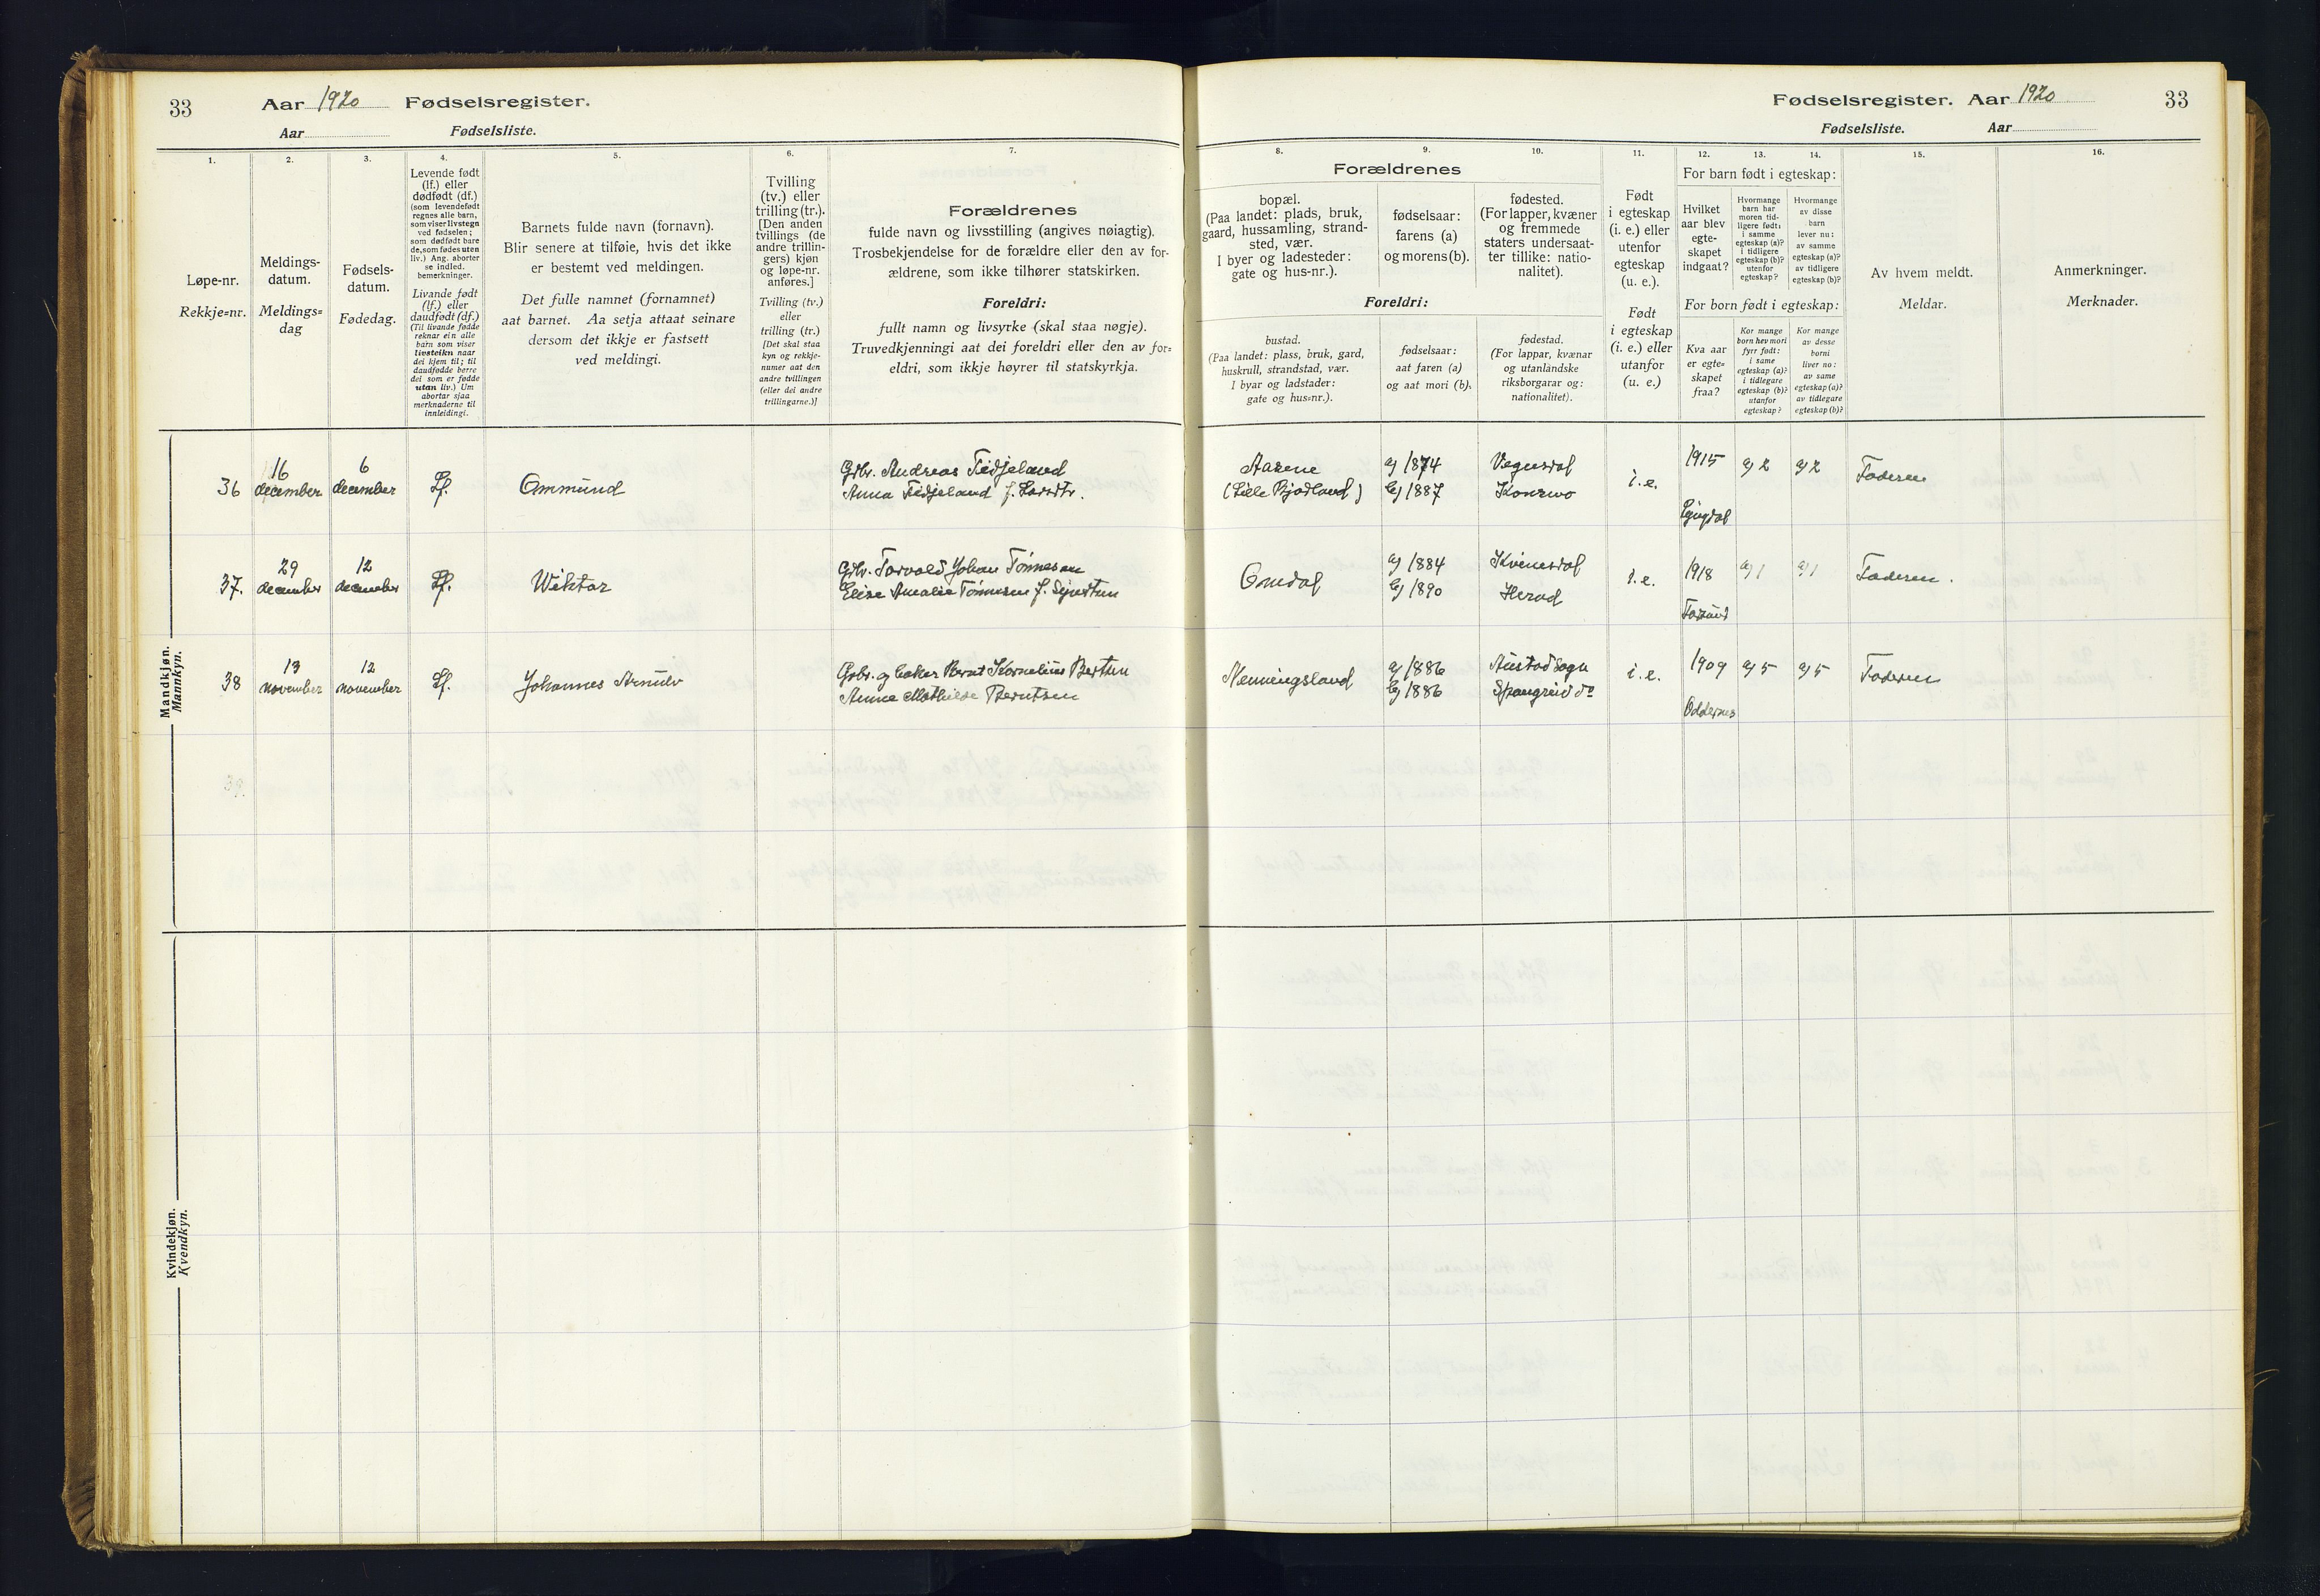 33
Aar 1920 Fødselsregister.
Aar Fødselsliste.
1.
Løpe-nr.
Rekkje=nr.
2.
Meldings-
datum.
Meldings=
dag
3.
Fødsels-
datum.
Fødedag.
4.
Levende født
(lf.) eller
dødfødt (df.)
(som levendefødt
regnes alle barn,
som viser livstegn
ved fødselen;
som dødfødt bare
de, som fødes uten
liv.) Ang. aborter
se indled.
bemerkninger.
Livande født
(lf.) eller
daudfødt (df.)
(Til livande fødde
reknar ein alle
barn som viser
livsteikn naar
dei kjem til; til
daudfødde berre
dei som er fødde
utan liv.) Um
abortar sjaa
merknaderne til
innleidingi.
5.
Barnets fulde navn (fornavn).
Blir senere at tilføie, hvis det ikke
er bestemt ved meldingen.
Det fulle namnet (fornamnet)
aat barnet. Aa setja attaat seinare
dersom det ikkje er fastsett
ved meldingi.
6.
Tvilling
(tv.) eller
trilling (tr.).
[Den anden
tvillings (de
andre trillin-
gers) kjøn
og løpe-nr.
anføres.]
Tvilling (tv.)
eller
trilling (tr.)
[Det skal staa
kyn og rekkje-
numer aat den
andre tvillingen
(eller dei andre
trillingarne.)]
7.
Forældrenes
fulde navn og livsstilling (angives nøiagtig).
Trosbekjendelse for de forældre eller den av for-
ældrene, som ikke tilhører statskirken.
Foreldri:
fullt namn og livsyrke (skal staa nøgje).
Truvedkjenningi aat dei foreldri eller den av for=
eldri, som ikkje høyrer til statskyrkja.
Mandkjøn.
Mannkyn.
36
16
december
6
december
Lf.
Ommund
Gbr. Andreas Tedjeland
Anna Tedjeland f.
37.
29
december
12
december
Lf.
Wiktor
Gbr. Torvald Johan Tønnesen
Elise Amalie Tønnesen f.
38
13
november
12
november
Lf.
Johannes Arnulv
Gbr. og baker Bernt Kornelius Berntsen
Anna Mathilde Berntsen
39.
Kvindekjøn.
Kvendkyn.
Fødselsregister. Aar 1920
33
Fødselsliste. Aar
Forældrenes
8.
bopæl.
(Paa landet: plads, bruk,
gaard, hussamling, strand-
sted, vær.
I byer og ladesteder:
gate og hus-nr.).
9.
fødselsaar:
farens (a)
og morens (b).
10.
fødested.
(For lapper, kvæner
og fremmede
staters undersaat-
ter tillike: natio-
nalitet).
Foreldri:
bustad.
(Paa landet: plass, bruk, gard,
huskrull, strandstad, vær.
I byar og ladstader:
gate og hus=nr.).
fødselsaar:
aat faren (a)
og aat mori (b).
fødestad.
(For lappar, kvænar
og utanlandske
riksborgarar og:
nationalitet).
11.
Født
i egteskap
(i. e.) eller
utenfor
egteskap
(u. e.).
Født
i egteskap
(i. e.) eller
utanfor
(u. e.)
12.
13.
14.
For barn født i egteskap:
Hvilket
aar blev
egte-
skapet
indgaat?
Hvormange
barn har
moren tid-
ligere født:
i samme
egteskap (a)?
i tidligere
egteskap (b)?
utenfor
egteskap?
Hvormange
av disse
barn
lever nu:
av samme
egteskap (a)?
av tidligere
egteskap (b)?
For born født i egteskap:
Kva aar
er egte=
skapet
fraa?
Kor mange
born hev mori
fyrr født:
i same
egteskap (a)?
i tidlegare
egteskap (b)?
utanfor
egteskap?
Kor mange
av desse
borni
liver no:
av same
egteskap (a)?
av tidlegare
egteskap (b)?
15.
Av hvem meldt.
Meldar.
16.
Anmerkninger.
Merknader.
Aasene
(Lille Bjodland)
a) 1874
b) 1887
Vegusdal
Konsmo
i. e.
1915
Gyngdal
a) 2
a) 2
Faderen
Omdal
a) 1884
b) 1890
Kvinesdal
Herad
i. e.
1918
Farsund
a) 1
a) 1
Faderen.
Nenningsland
a) 1886
b) 1886
Austad sogn
Spangreid do
i. e.
1909
Oddernes
a) 5
a) 5
Faderen